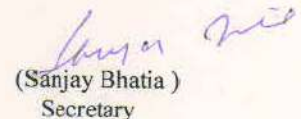 (Sanjay Bhatia )
Secretary